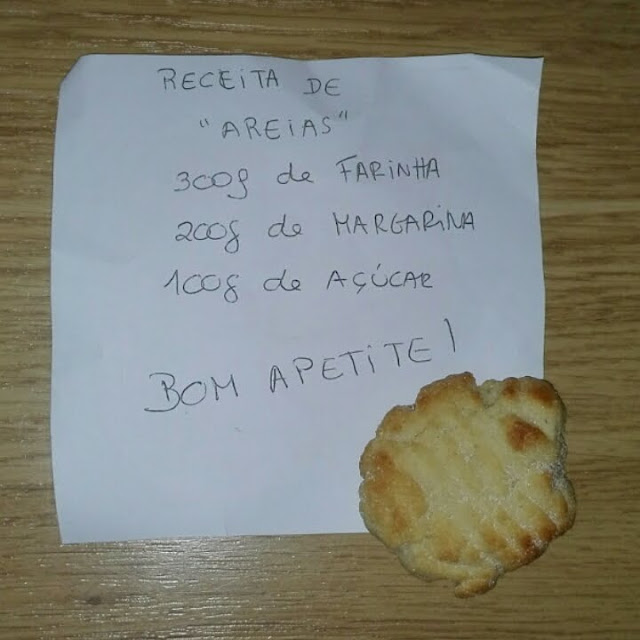 RECEITA DE
"AREIAS"
300g de FARINHA
200g de MARGARINA
100g de AÇÚCAR
BOM APETITE!